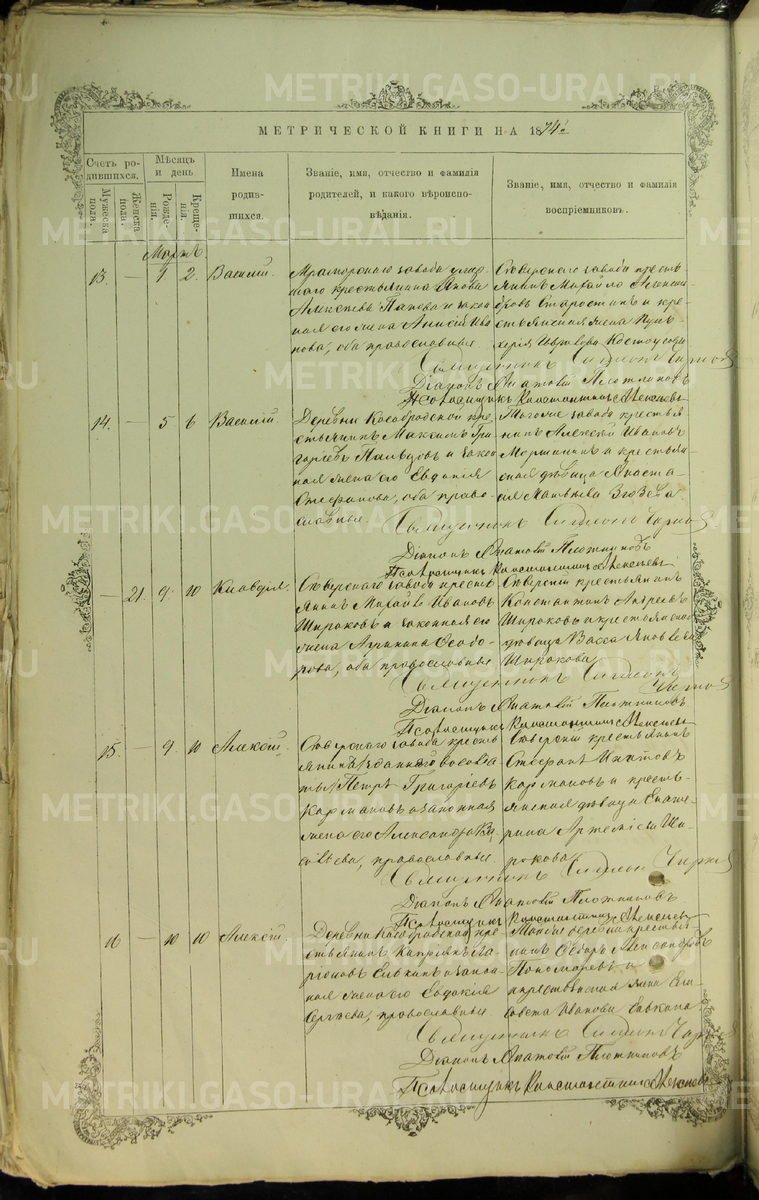 МЕТРИЧЕСКОЙ КНИГИ НА 1874 г.
Счетъ ро-
дившихся.
Мужеска
пола.
Женска
пола.
Мѣсяцъ
и день
Рожде-
нія.
Креще-
нія.
Имена
родив-
шихся.
Званіе, имя, отчество и фамилія
родителей, и какого вѣроиспо-
вѣданія.
Званіе, имя, отчество и фамилія
воспріемниковъ.
Мартъ
13. — 1 2. Василій.
Мраморскаго завода
крестьянина
Алексѣевъ Паповъ и закон
ная его жена
нова, оба православные.
Сѣверскаго завода кресть-
янинъ Михайло Алексан-
дровъ Старостинъ и кре-
стьянская жена Пуль-
херія Костоусова
Священникъ Симеонъ
Діаконъ Игнатій Плотниковъ
Псаломщикъ Константинъ Алексѣевъ
14. — 5 6 Василій.
Деревни Кособродской кре-
стьянинъ Максимъ Гри-
горьевъ и закон
ная жена его Евдокія
Стефанова, оба право-
славные.
завода крестья
нинъ Алексѣй Ивановъ
и крестьян
ская дѣвица Анаста-
сія Матвѣева
Священникъ Симеонъ
Діаконъ Игнатій Плотниковъ
Псаломщикъ Константинъ Алексѣевъ
— 21. 9. 10 Клавдія.
Сѣверскаго завода кресть
янинъ Михайло Ивановъ
Широковъ и законная его
жена Агрипина Ѳеодо-
рова, оба православные
Сѣверскій крестьянинъ
Константинъ Андреевъ
Широковъ и крестьянская
дѣвица Васса Яковлева
Широкова
Священникъ Симеонъ
Діаконъ Игнатій Плотниковъ
Псаломщикъ Константинъ Алексѣевъ
15. — 9. 10 Алексѣй.
Сѣверскаго завода кресть
янинъ
Петръ Григорьевъ
Кармановъ и законная
жена его Александра Ва-
сильева, православные.
Сѣверскій крестьянинъ
Стефанъ Никитовъ
Кармановъ и кресть-
янская дѣвица Екате-
рина Артемьева Ши-
рокова
Священникъ Симеонъ
Діаконъ Игнатій Плотниковъ
Псаломщикъ Константинъ Алексѣевъ
16 — 10 10 Алексѣй.
Деревни Кособродской кре-
стьянинъ Кипріянъ Ла-
ріоновъ Савкинъ и закон-
ная жена его Евдокія
Сергѣева, православные.
Той же деревни крестья-
нинъ Ѳедоръ
Пономаревъ и
крестьянская жена Ели-
савета Иванова Савкина.
Священникъ Симеонъ
Діаконъ Игнатій Плотниковъ
Псаломщикъ Константинъ Алексѣевъ
METRIKI.GASO-URAL.RU